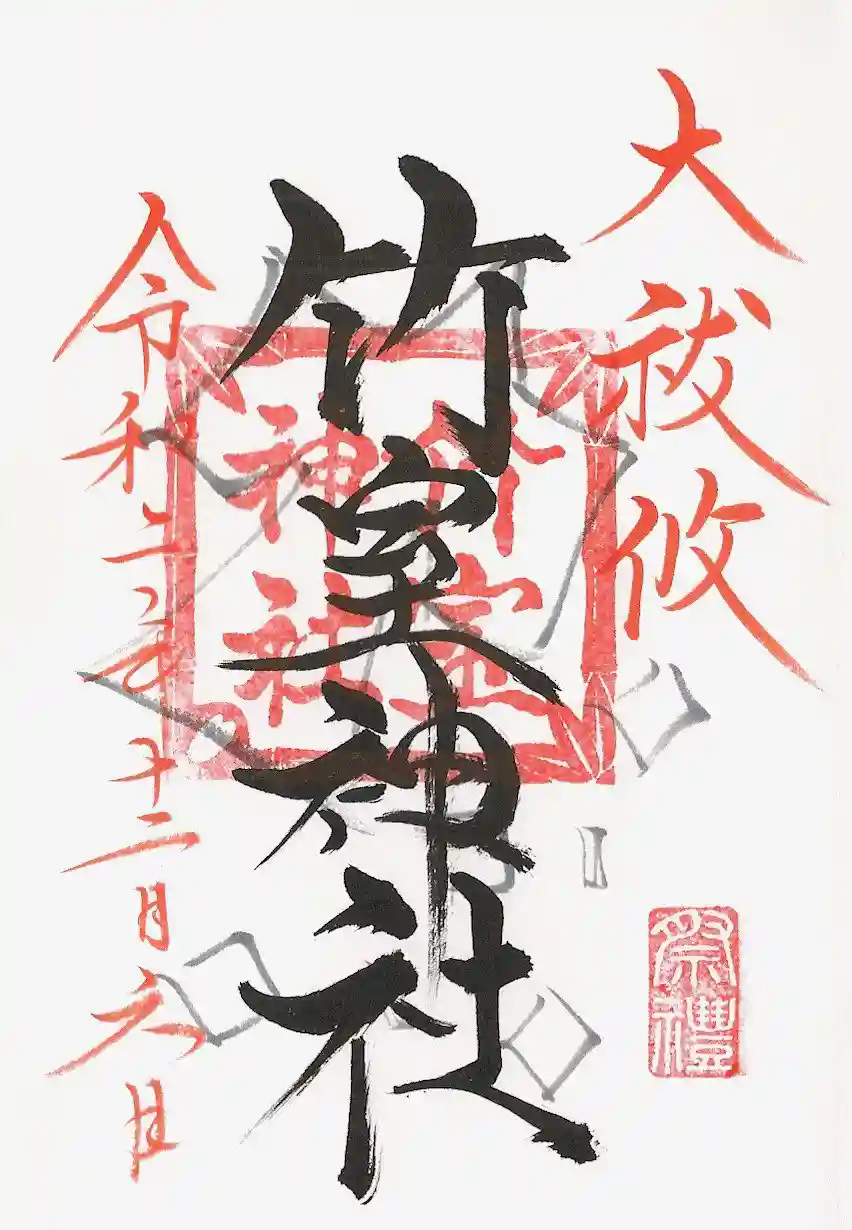 大祓攸
竹室神社
竹室
神社
令和二年十二月六日
祭禮